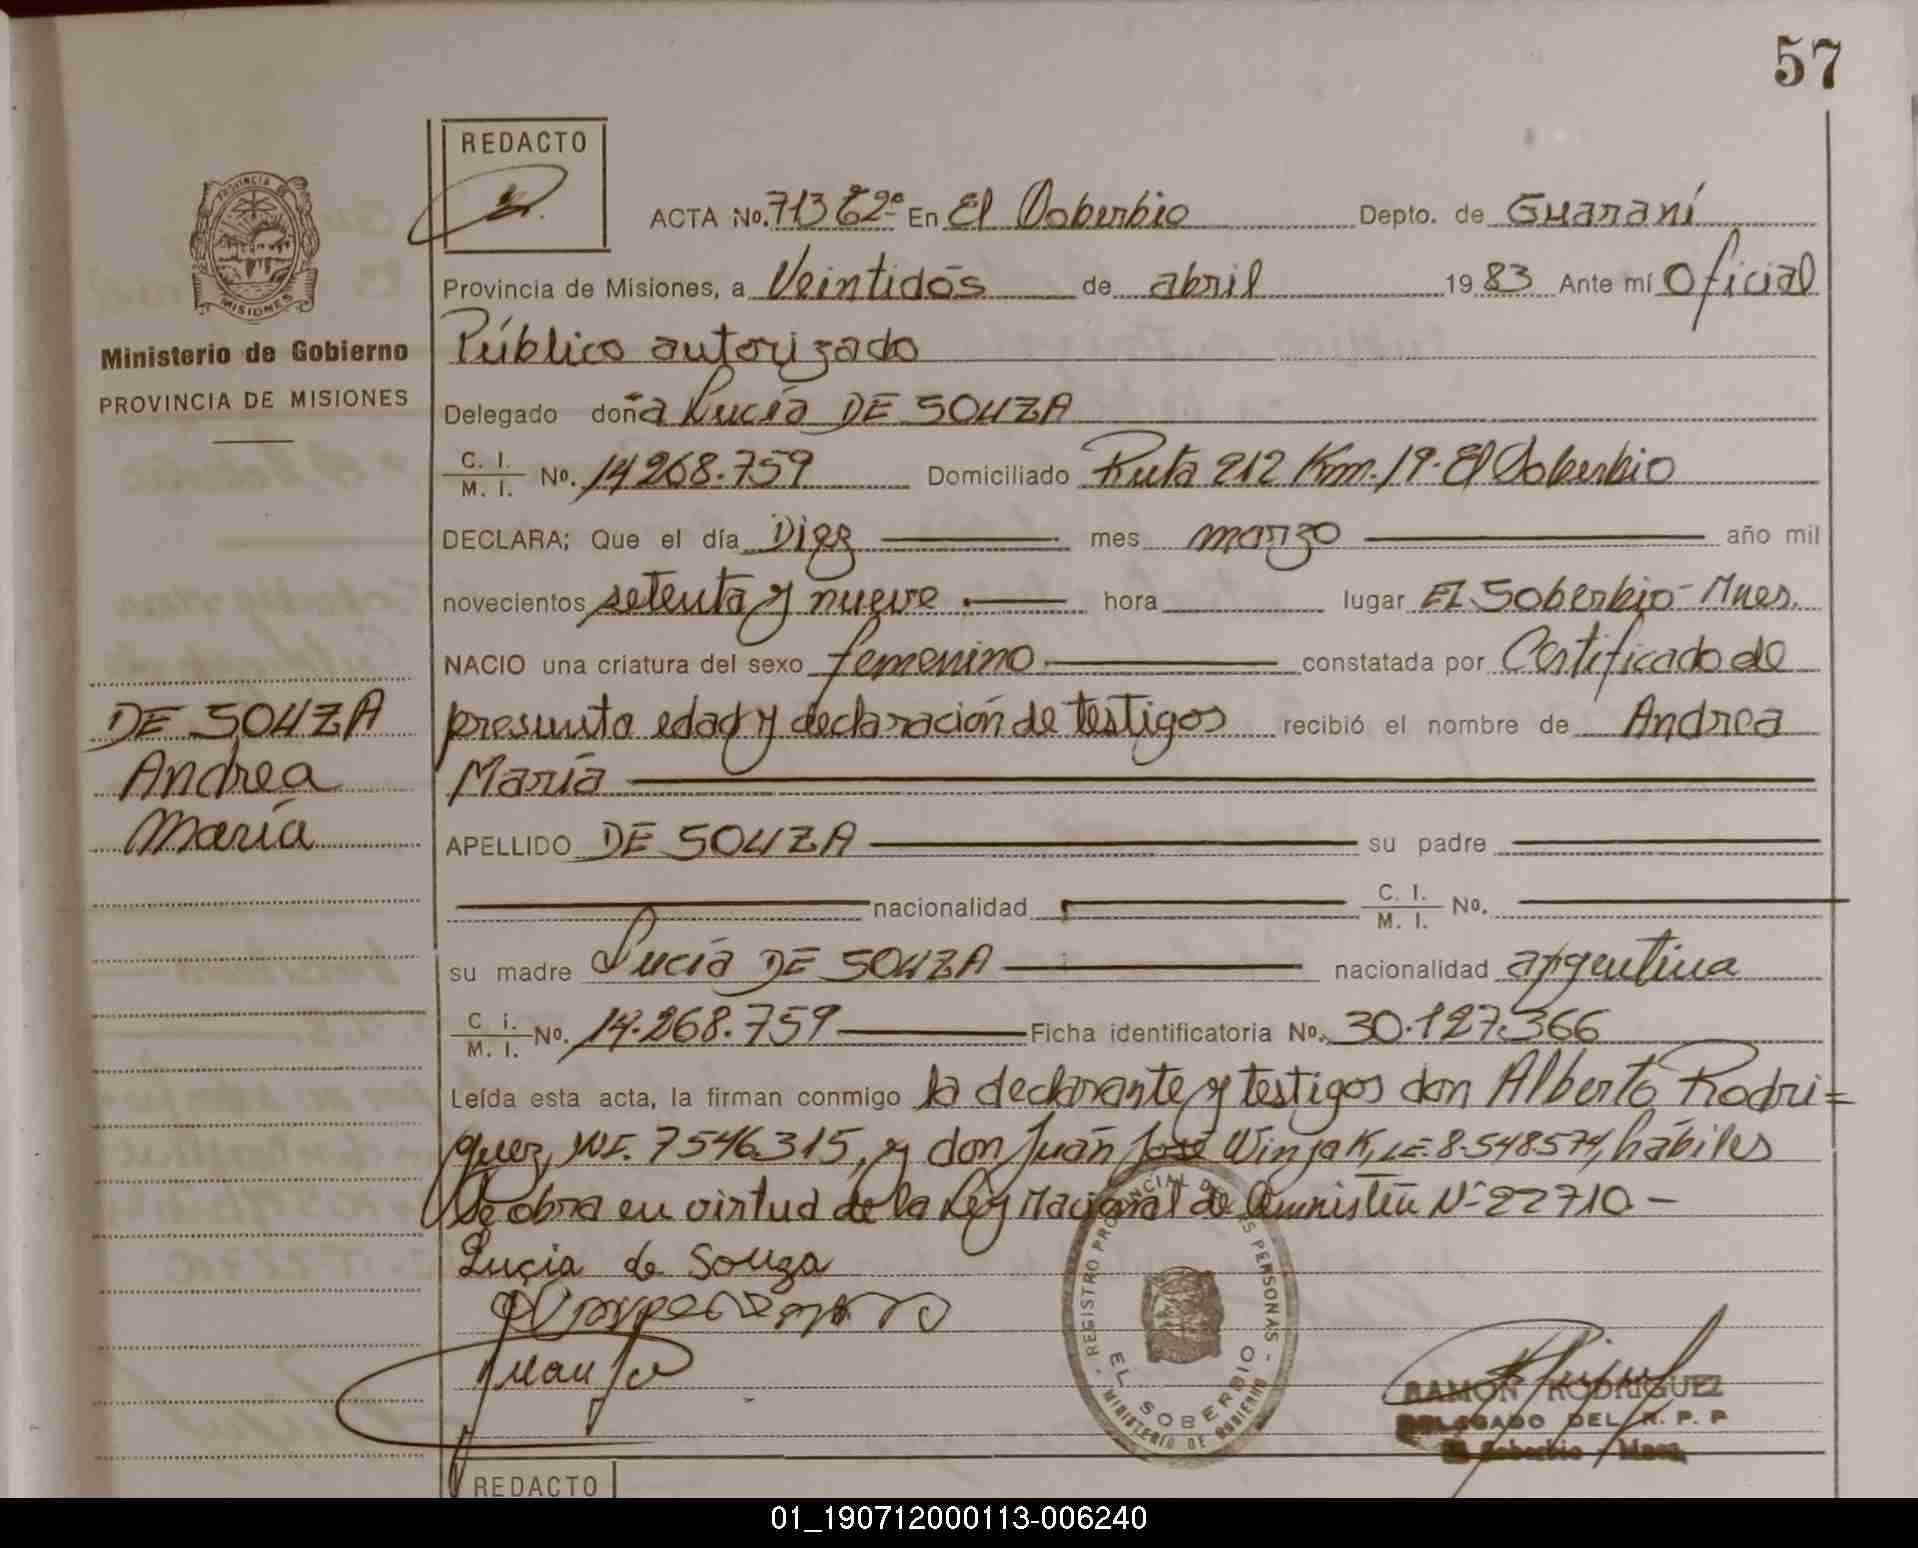 57
REDACTO
ACTA No. 713 Tº 2º En El Soberbio Depto. de Guaraní
Provincia de Misiones, a Veintidós de abril 1983 Ante mí Oficial
Público autorizado
Delegado doña Lucía DE SOUZA
C. I.
M. I. No. 14.268.759 Domiciliado Ruta 212 Km. 19- El Soberbio
DECLARA; Que el día Diez mes marzo año mil
novecientos setenta y nueve hora lugar El Soberbio- Mnes.
NACIO una criatura del sexo femenino constatada por Certificado de
presunta edad y declaración de testigos recibió el nombre de Andrea
María
APELLIDO DE SOUZA su padre
nacionalidad C. I.
M. I. No.
su madre Lucía DE SOUZA nacionalidad argentina
C i.
M. I. No. 14.268.759 Ficha identificatoria No. 30.127.366
Leída esta acta, la firman conmigo la declarante y testigos don Alberto Rodri=
guez, MI. 7546.315, y don Juán José Winjak, LE. 8.548574, hábiles
Se obra en virtud de la Ley Nacional de Amnistía Nº 22710.-
Lucia de Souza
PROVINCIA DE
MISIONES
Ministerio de Gobierno
PROVINCIA DE MISIONES
DE SOUZA
Andrea
María
REGISTRO PROVINCIAL DE LAS PERSONAS
EL SOBERBIO
MINISTERIO DE GOBIERNO
RAMON RODRIGUEZ
DELEGADO DEL R. P. P
El Soberbio - Mnes.
REDACTO
01_190712000113-006240